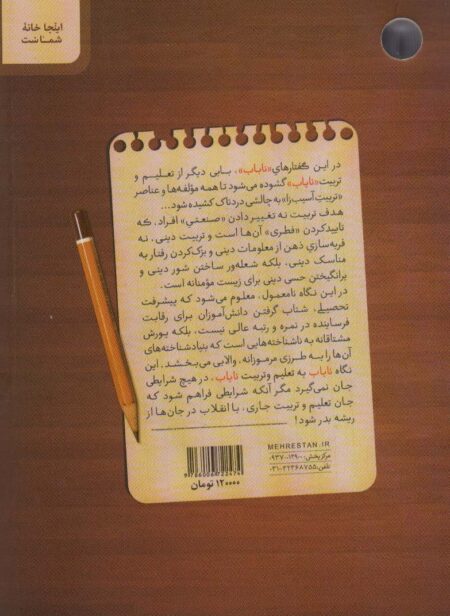 اینجا خانهٔ
شماست
در این گفتارهایِ «نایاب»، بابی دیگر از تعلیم و
تربیت «نایاب» گشوده می‌شود تا همه مؤلفه‌ها و عناصر
«تربیتِ آسیب‌زا» به چالشی دردناک کشیده شود...
هدف تربیت نه تغییر دادن «صنعتیِ» افراد، که
تاییدکردن «فطریِ» آن‌ها است و تربیت دینی، نه
فربه‌سازیِ ذهن از معلومات دینی و بزک‌کردن رفتار به
مناسک دینی، بلکه شعله‌ور ساختن شور دینی و
برانگیختن حسی دینی برای زیست مؤمنانه است.
در این نگاه نامعمول، معلوم می‌شود که پیشرفت
تحصیلی، شتاب گرفتن دانش‌آموزان برای رقابت
فرساینده در نمره و رتبه عالی نیست، بلکه یورش
مشتاقانه به ناشناخته‌هایی است که بنیادشناخته‌های
آن‌ها را به طرزی مرموزانه، والایی می‌بخشد. این
نگاه نایاب به تعلیم وتربیت نایاب، در هیچ شرایطی
جان نمی‌گیرد مگر آنکه شرایطی فراهم شود که
جان تعلیم و تربیت جاری، با انقلاب در جان‌ها از
ریشه بدر شود!
MEHRESTAN.IR
مرکزپخش: ۱۳۹۰۰-۰۹۳۷
تلفن: ۳۲۳۶۸۷۵۵-۰۳۱
۱۲۰۰۰۰ تومان